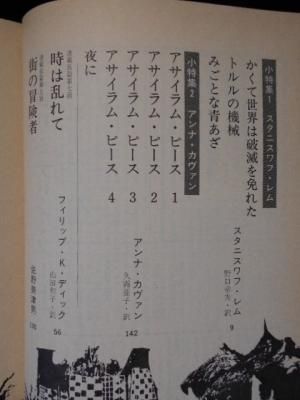 小特集1 スタニスワフ・レム
かくて世界は破滅を免れた
トルルの機械
みごとな青あざ
スタニスワフ・レム
野口幸夫・訳
9
小特集2 アンナ・カヴァン
アサイラム・ピース 1
アサイラム・ピース 2
アサイラム・ピース 3
アサイラム・ピース 4
夜に
アンナ・カヴァン
142
時は乱れて
フィリップ・K・ディック
山田和子・訳
56
街の冒険者
佐野美津男